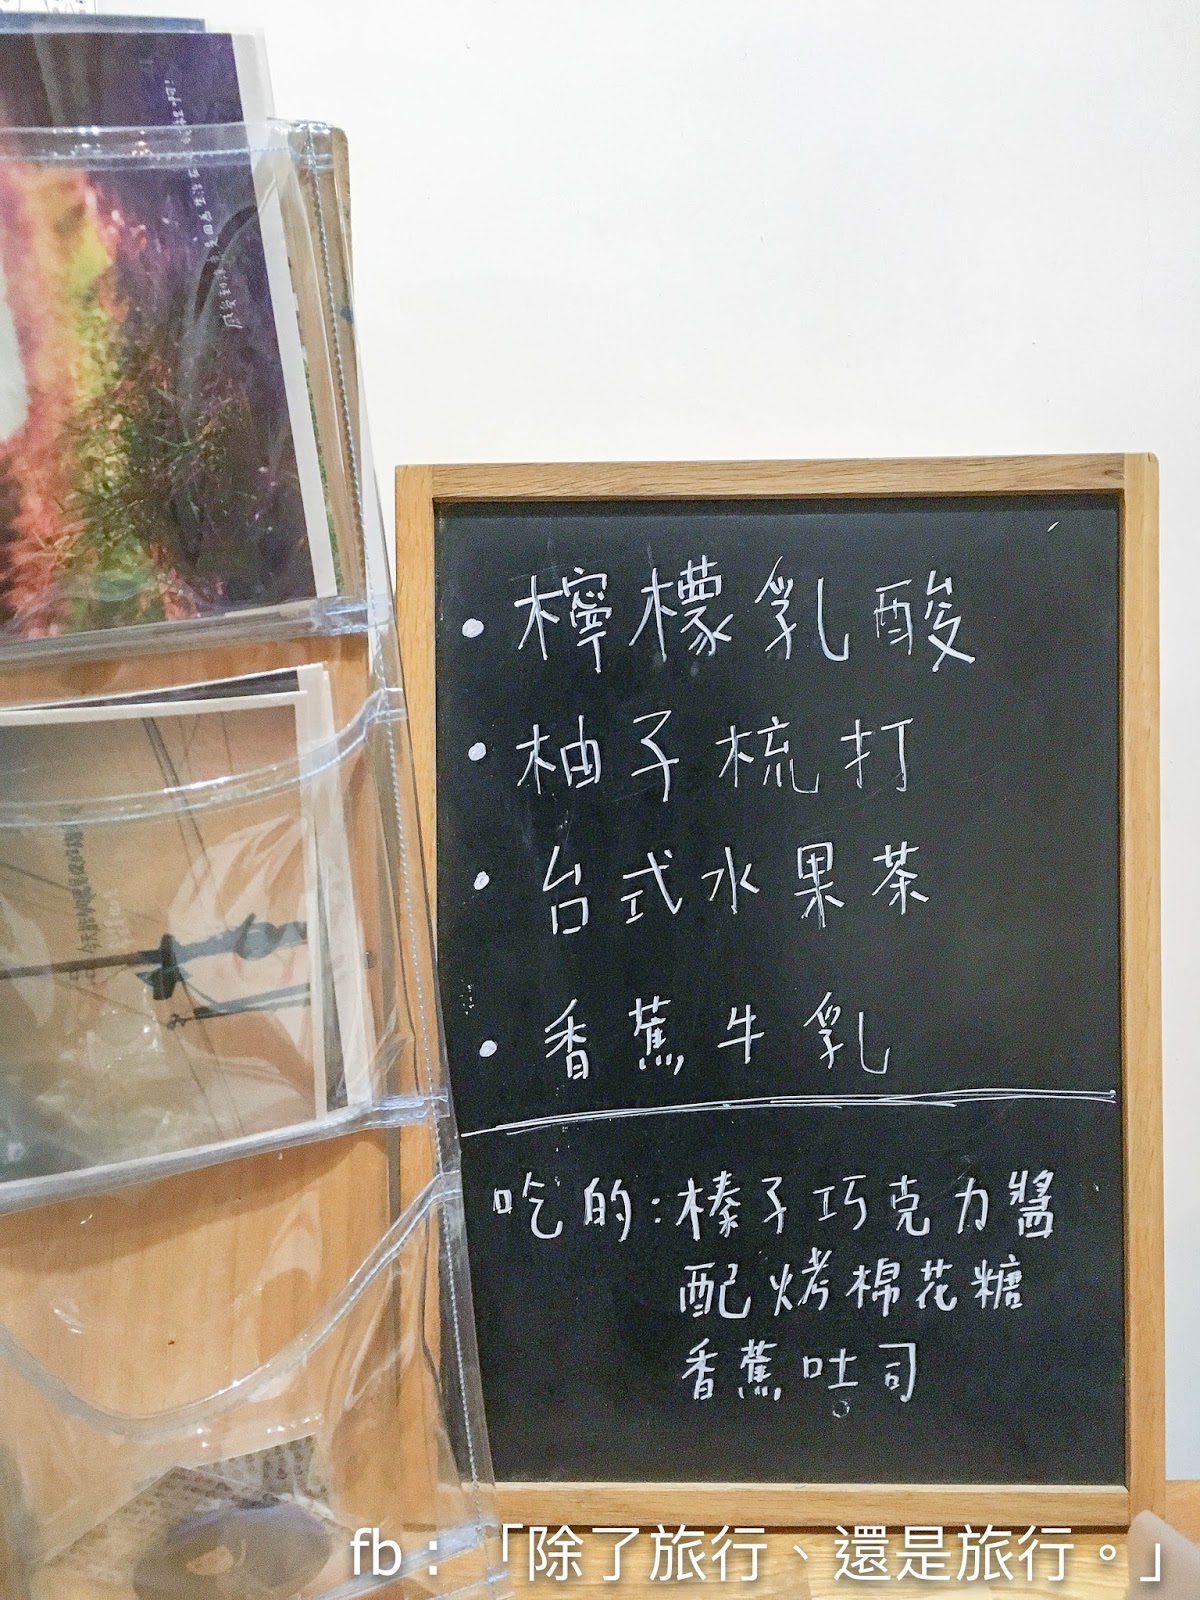 • 檸檬乳酸
• 柚子梳打
• 台式水果茶
• 香蕉牛乳
吃的:榛子巧克力醬
配烤棉花糖
香蕉吐司
fb：「除了旅行、還是旅行。」